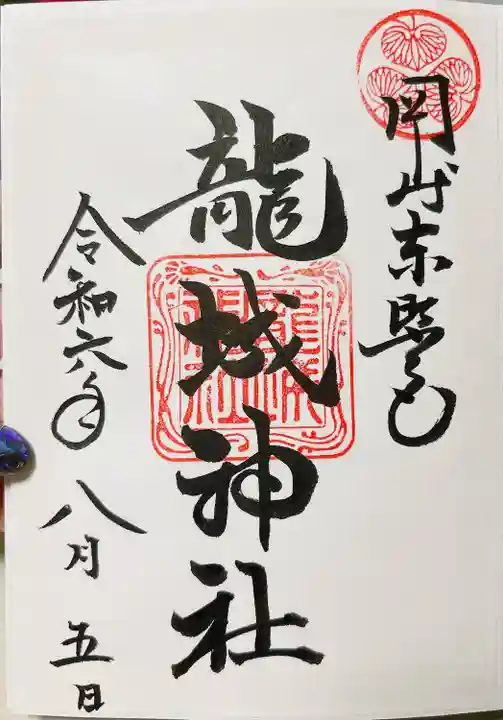 岡崎東照宮
龍城神社
龍城神社
令和六年八月五日